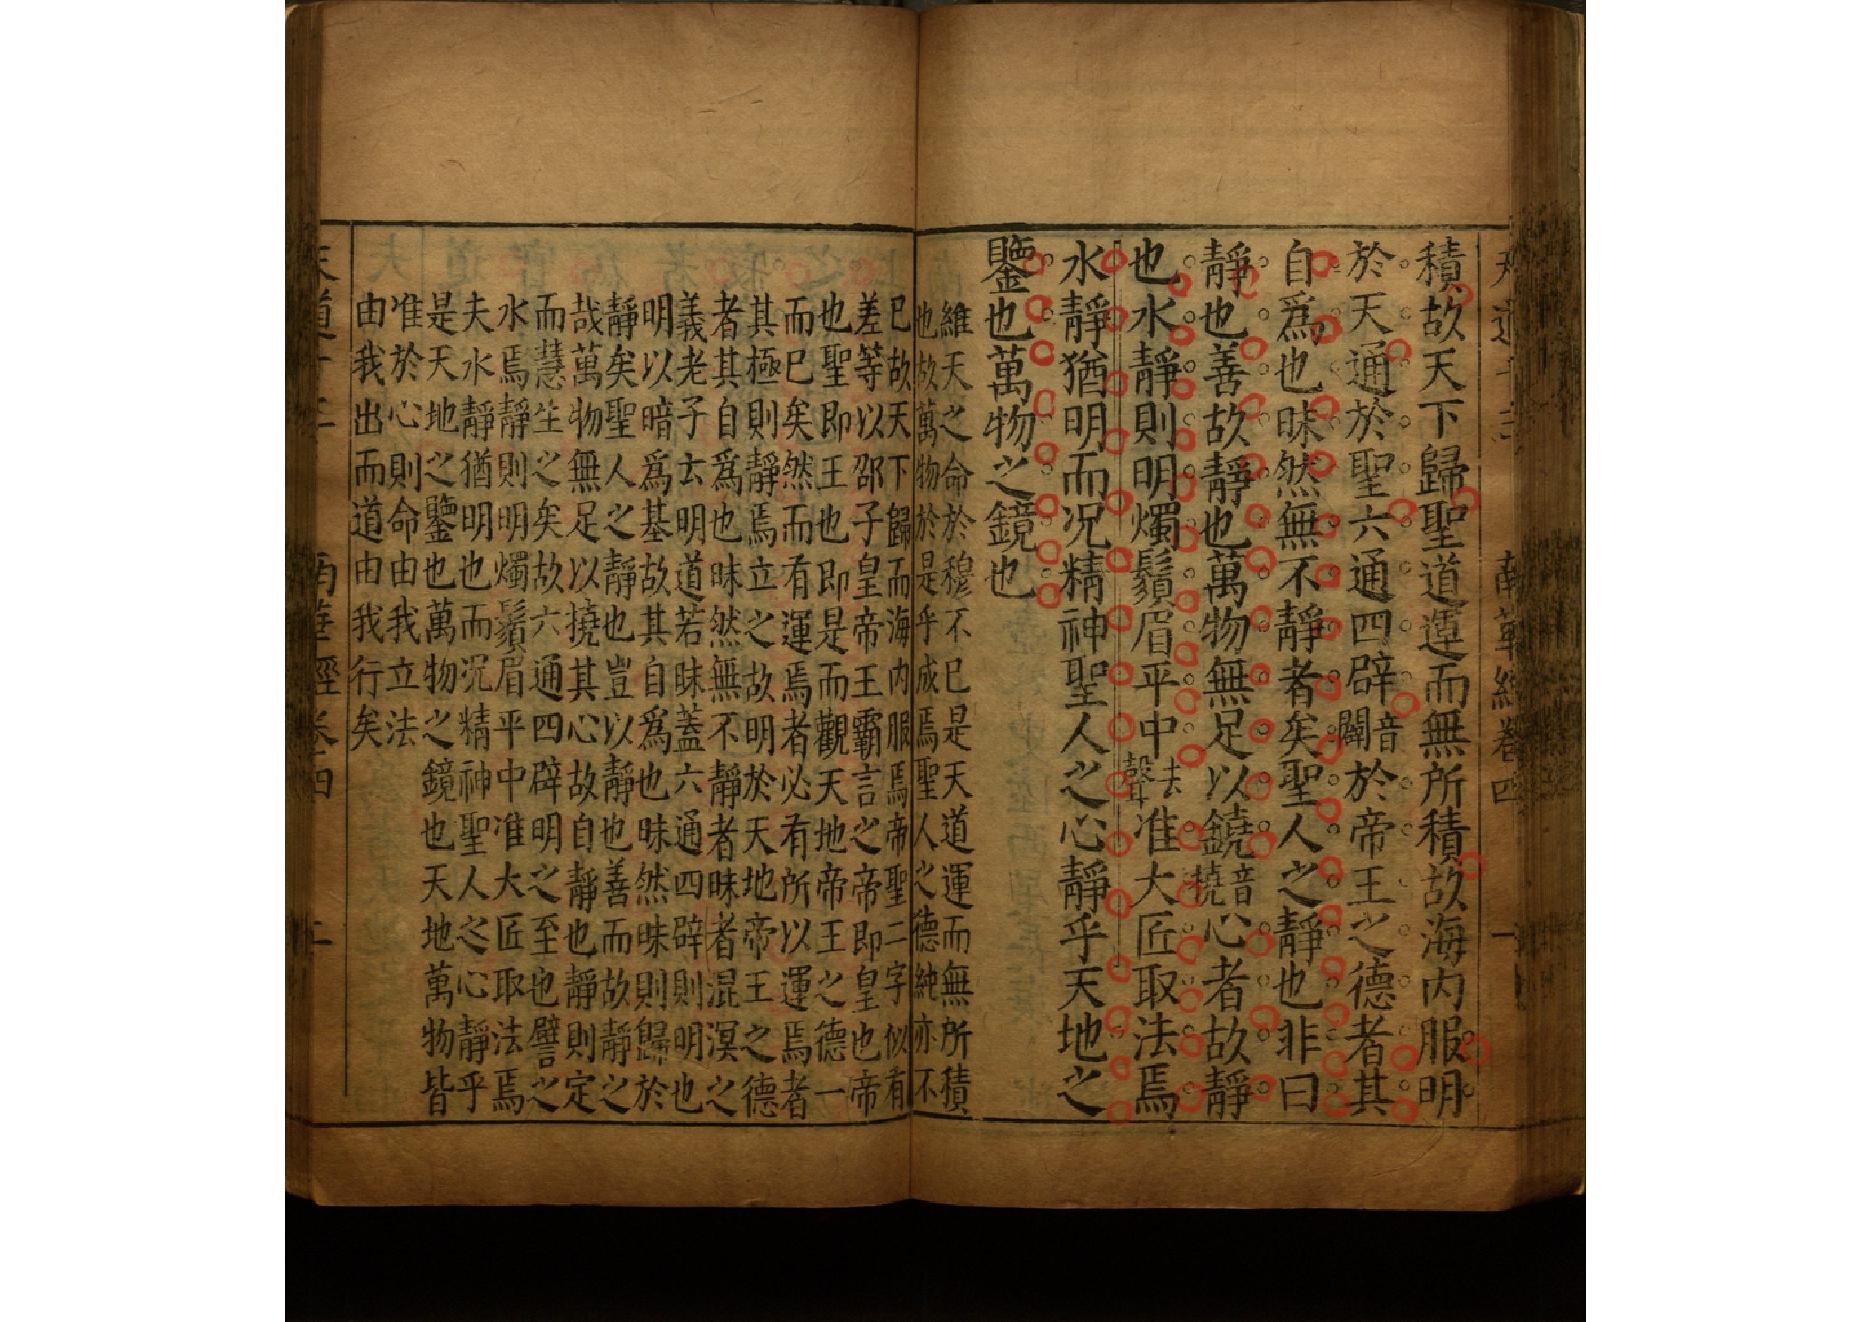 天道十三 南華經卷四 一
積故天下歸聖道運而無所積故海内服明
於天通於聖六通四辟音闢於帝王之德者其
自爲也昧然無不靜者矣聖人之靜也非曰
靜也善故靜也萬物無足以鐃音撓心者故靜
也水靜則明燭鬚眉平中去聲准大匠取法焉
水靜猶明而况精神聖人之心靜乎天地之
鑒也萬物之鏡也
維天之命於穆不已是天道運而無所積
也故萬物於是乎成焉聖人之德純亦不
已故天下歸而海内服焉帝聖二字似有
差等以邵子皇帝王霸言之帝即皇也帝
也聖即王也即是而觀天地帝王之德一
而已矣然而有運焉者必有所以運焉者
其極則靜焉立之故明於天地帝王之德
者其自爲也昧然無不靜者昧者混溟之
義老子云明道若昧蓋六通四辟則明也
明以暗爲基故其自爲也昧然昧則歸於
靜矣聖人之靜也豈以靜也善而故靜之
哉萬物無足以撓其心故自靜也靜則定
而慧生之矣故六通四辟明之至也譬之
水焉靜則明燭鬚眉平中准大匠取法焉
夫水靜猶明也而况精神聖人之心靜乎
是天地之鑒也萬物之鏡也天地萬物皆
准於心則命由我立法
由我出而道由我行矣
天道十三 南華經卷四 二